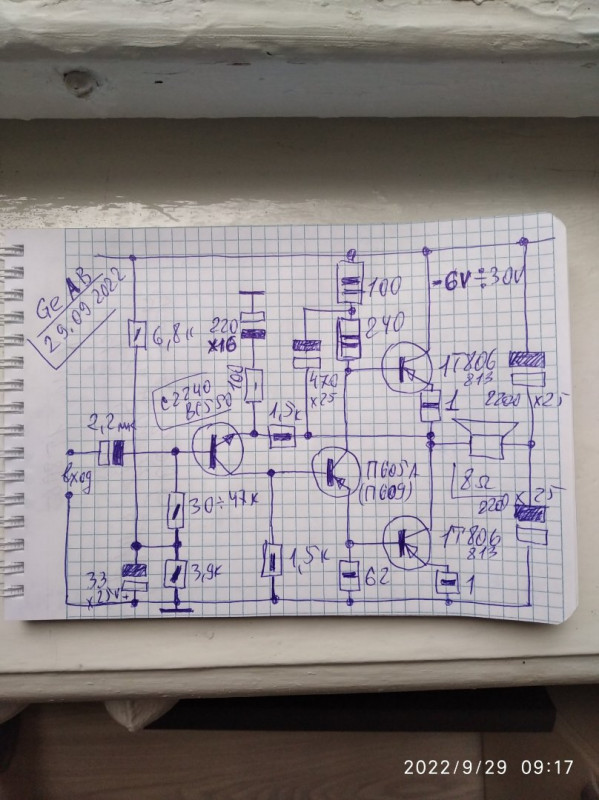 Ge AB
29.09.2022
6,8к
220
x16
100
240
-6V÷30V
1Т806
813
1
2200 x25
470
x25
100
C2240
BC550
1,5к
2,2мк
вход
П605А
(П609)
8Ω
2200 x 25
30÷47к
1Т806
813
33
x25V
+
3,9к
1,5к
62
1
2022/9/29 09:17